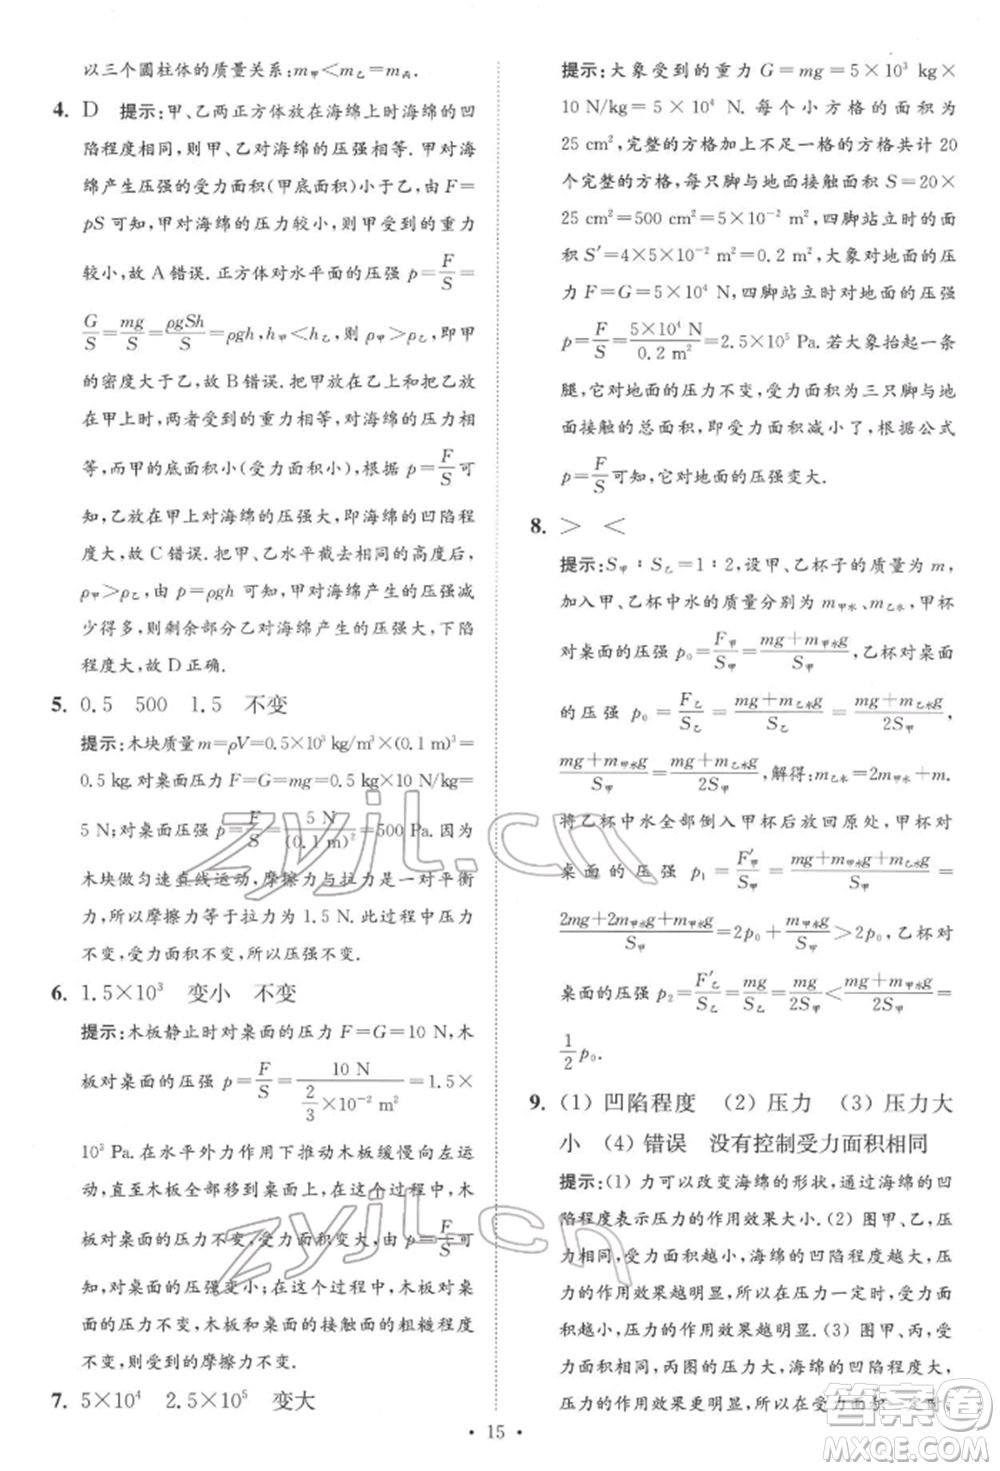 以三个圆柱体的质量关系:m甲<m乙=m丙.
4. D 提示:甲、乙两正方体放在海绵上时海绵的凹
陷程度相同,则甲、乙对海绵的压强相等.甲对海
绵产生压强的受力面积(甲底面积)小于乙,由F=
pS可知,甲对海绵的压力较小,则甲受到的重力
较小,故A错误.正方体对水平面的压强 p=F/S=
G/S=mg/S=ρgSh/S=ρgh,h甲<h乙,则ρ甲>ρ乙,即甲
的密度大于乙,故B错误.把甲放在乙上和把乙放
在甲上时,两者受到的重力相等,对海绵的压力相
等,而甲的底面积小(受力面积小),根据 p=F/S可
知,乙放在甲上对海绵的压强大,即海绵的凹陷程
度大,故C错误.把甲、乙水平截去相同的高度后,
ρ甲>ρ乙,由 p=ρgh 可知,甲对海绵的压强减
少得多,则剩余部分乙对海绵产生的压强大,下陷
程度大,故D正确.
5. 0.5 500 1.5 不变
提示:木块质量m=ρV=0.5×10³ kg/m³×(0.1 m)³=
0.5 kg.对桌面压力F=G=mg=0.5 kg×10 N/kg=
5 N;对桌面压强 p=F/S=5 N/(0.1 m)²=500 Pa.因为
木块做匀速直线运动,摩擦力与拉力是一对平衡
力,所以摩擦力等于拉力为1.5 N.此过程中压力
不变,受力面积不变,所以压强不变.
6. 1.5×10³ 变小 不变
提示:木板静止时对桌面的压力F=G=10 N,木
板对桌面的压强 p=F/S=10 N/(2/3×10⁻² m²)=1.5×
10³ Pa.在水平外力作用下推动木板缓慢向左运
动,直至木板全部移到桌面上,在这个过程中,木板
对桌面的压力不变,受力面积变大,根据 p=F/S可
知,对桌面的压强变小;在这个过程中,木板对桌面
的压力不变,木板和桌面的接触面的粗糙程度
不变,则受到的摩擦力不变.
7. 5×10⁴ 2.5×10⁵ 变大
提示:大象受到的重力 G=mg=5×10³ kg×
10 N/kg=5×10⁴ N.故每个小方格的面积为
25 cm²,完整的方格加上不足一格的方格共计 20
个完整的方格,每只脚与地面接触面积 S=20×
25 cm²=500 cm²=5×10⁻² m²,四脚站立时的面
积 S′=4×5×10⁻² m²=0.2 m².大象对地面的压
力 F=G=5×10⁴ N,四脚站立时对地面的压强
p=F/S=5×10⁴ N/0.2 m²=2.5×10⁵ Pa.若大象抬起一条
腿,它对地面的压力不变,受力面积为三只脚与地
面接触的总面积,即受力面积减小了,根据公式
p=F/S可知,它对地面的压强变大.
8. > <
提示:S甲∶S乙=1∶2,设甲、乙杯子的质量为 m,
加入甲、乙杯中水的质量分别为 m甲水、m乙水,甲杯
对桌面的压强 p₀=F甲/S甲=(mg+m甲水g)/S甲,乙杯对桌面
的压强 p₀=F乙/S乙=(mg+m乙水g)/S乙=(mg+m乙水g)/2S甲,
(mg+m甲水g)/S甲=(mg+m乙水g)/2S甲,解得:m乙水=2m甲水+m.
将乙杯中水全部倒入甲杯后放回原处,甲杯对
桌面的压强 p₁=F′甲/S甲=(mg+m甲水g+m乙水g)/S甲=
(2mg+2m甲水g+m甲水g)/S甲=2p₀+m甲水g/S甲>2p₀,乙杯对
桌面的压强 p₂=F′乙/S乙=mg/S乙=mg/2S甲<(mg+m甲水g)/2S甲=
1/2 p₀.
9. (1) 凹陷程度 (2) 压力 (3) 压力大
小 (4) 错误 没有控制受力面积相同
提示:(1) 力可以改变海绵的形状,通过海绵的凹
陷程度表示压力的作用效果大小.(2) 图甲、乙,
压力相同,受力面积越小,海绵的凹陷程度越大,压
力的作用效果越明显,所以在压力一定时,受力面
积越小,压力的作用效果越明显.(3) 图甲、丙,受
力面积相同,丙图的压力越大,海绵的凹陷程度越
大,压力的作用效果越明显,所以在受力面积一定
时,压力越大,压力的作用效果越明显.
· 15 ·
zyjl.cn
zyjl.cn
答案圈
MXQE.COM